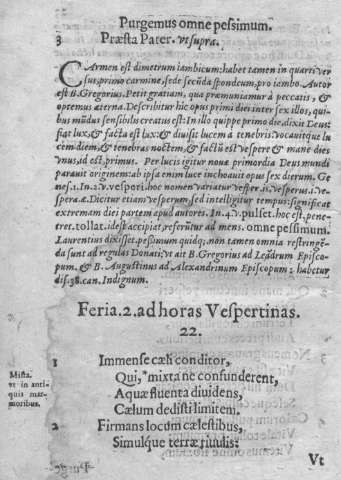 Purgemus omne pessimum.
3 Præsta Pater. vt supra.
CArmen est dimetrum iambicum: habet tamen in quarti ver
sus, primo carmine, sede secūda spondeum, pro iambo. Autor
est B. Gregorius. Petit gratiam, qua præmuniamur à peccatis, &
optemus æterna. Describitur hic opus primi dier inter sex illos, qui-
bus mūdus sensibilis creatus est: In illo quippe primo die, dixit Deus:
fiat lux, & facta est lux: & diuisit lucem à tenebris: vocauitque lu
cem diem, & tenebras noctem, & factū est vespere & mane dies
vnus, id est, primus. Per lucis igitur noua primordia Deus mundi
parauit originem: ab ipsa enim luce inchoauit opus sex dierum. Ge
nes. 1. In. 2. v. vesperi, hoc nomen variatur vesper. is, vesperus. i. ve-
spera. æ. Dicitur etiam vesperum, sed intelligitur tempus: significat
extremam diei partem apud autores. In. 4. v. pulset. hoc est, pene-
tret. tollat. idest accipiat, referūtur ad mens. omne pessimum.
Laurentius dixisset, pessimum quidq; non tamen omnia restringē-
da sunt ad regulas Donati: vt ait B. Gregorius ad Leādrum Episco-
pum. & B. Augustinus ad Alexandrinum Episcopum: habetur
dis. 38. can. Indignum.
Feria. 2. ad horas Vespertinas.
22.
1 Immense cæli conditor,
Mista.
vt in anti-
quis mar-
moribus.
Qui, *mixta ne confunderent,
Aquæ fluenta diuidens,
Cælum dedisti limitem.
2 Firmans locum cælestibus,
Simulque terræ riuulis:
Vt